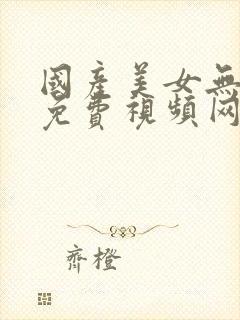 國產美女無
免費視頻网
齊橙